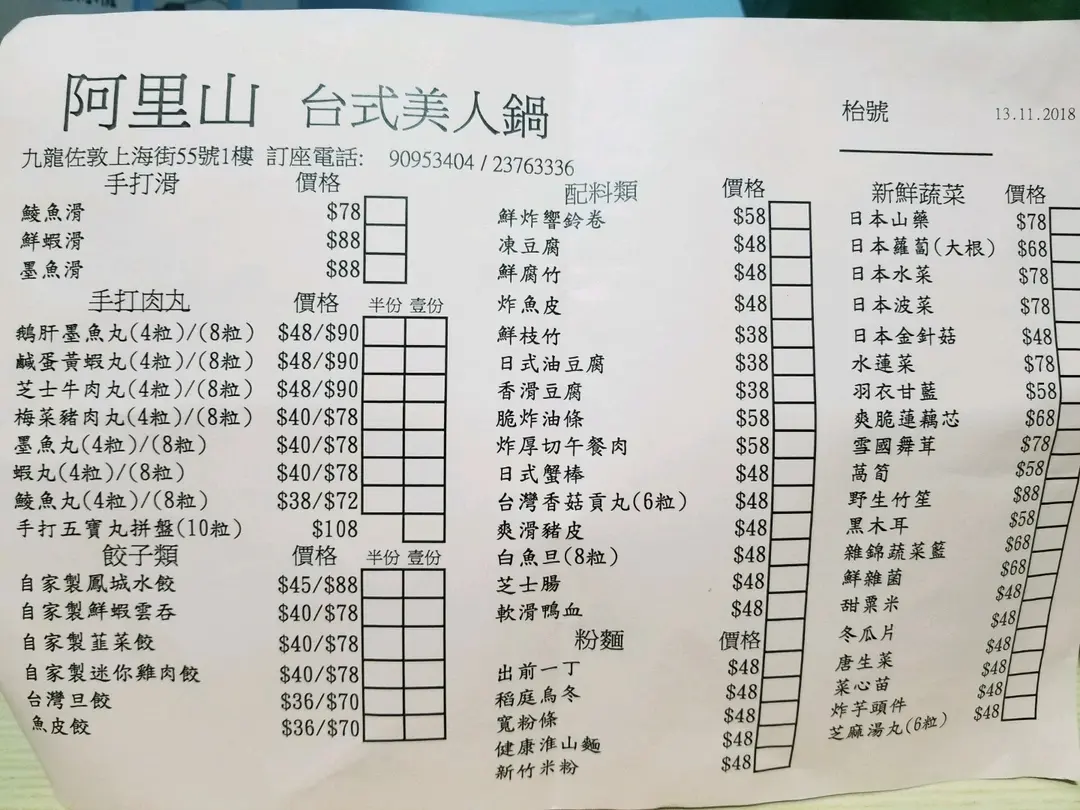 阿里山 台式美人鍋
枱號
13.11.2018
九龍佐敦上海街55號1樓 訂座電話: 90953404 / 23763336
手打滑 價格
鯪魚滑 $78
鮮蝦滑 $88
墨魚滑 $88
手打肉丸 價格 半份 壹份
鵝肝墨魚丸(4粒)/(8粒) $48/$90
鹹蛋黃蝦丸(4粒)/(8粒) $48/$90
芝士牛肉丸(4粒)/(8粒) $48/$90
梅菜豬肉丸(4粒)/(8粒) $40/$78
墨魚丸(4粒)/(8粒) $40/$78
蝦丸(4粒)/(8粒) $40/$78
鯪魚丸(4粒)/(8粒) $38/$72
手打五寶丸拼盤(10粒) $108
餃子類 價格 半份 壹份
自家製鳳城水餃 $45/$88
自家製鮮蝦雲吞 $40/$78
自家製韮菜餃 $40/$78
自家製迷你雞肉餃 $40/$78
台灣旦餃 $36/$70
魚皮餃 $36/$70
配料類 價格
鮮炸響鈴卷 $58
凍豆腐 $48
鮮腐竹 $48
炸魚皮 $48
鮮枝竹 $38
日式油豆腐 $38
香滑豆腐 $38
脆炸油條 $58
炸厚切午餐肉 $58
日式蟹棒 $48
台灣香菇貢丸(6粒) $48
爽滑豬皮 $48
白魚旦(8粒) $48
芝士腸 $48
軟滑鴨血 $48
粉麵 價格
出前一丁 $48
稻庭烏冬 $48
寬粉條 $48
健康淮山麵 $48
新竹米粉 $48
新鮮蔬菜 價格
日本山藥 $78
日本蘿蔔(大根) $68
日本水菜 $78
日本波菜 $78
日本金針菇 $48
水蓮菜 $78
羽衣甘藍 $58
爽脆蓮藕芯 $68
雪國舞茸 $78
萵筍 $58
野生竹笙 $88
黑木耳 $58
雜錦蔬菜籃 $68
鮮雜菌 $68
甜粟米 $48
冬瓜片 $48
唐生菜 $48
菜心苗 $48
炸芋頭件 $48
芝麻湯丸(6粒) $48